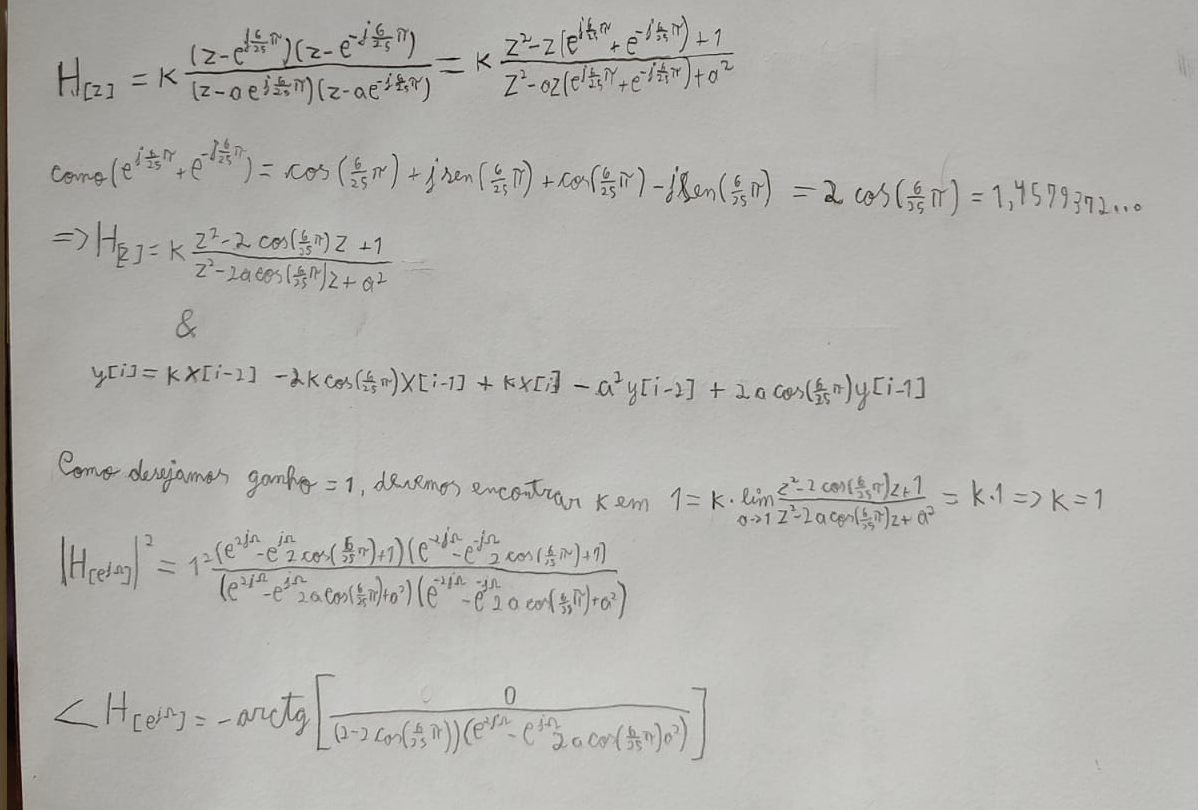 H[z] = K (z-e^{j6/25π})(z-e^{-j6/25π}) / (z-ae^{j6/25π})(z-ae^{-j6/25π}) = K z²-z(e^{j6/25π}+e^{-j6/25π})+1 / z²-az(e^{j6/25π}+e^{-j6/25π})+a²
Como (e^{j6/25π}+e^{-j6/25π}) = cos(6/25π)+jsen(6/25π)+cos(6/25π)-jsen(6/25π) = 2cos(6/25π) = 1,4579372...
=> H[z] = K z²-2cos(6/25π)z+1 / z²-2acos(6/25π)z+a²
&
y[i] = Kx[i-2] -2Kcos(6/25π)x[i-1] + Kx[i] - a²y[i-2] + 2acos(6/25π)y[i-1]
Como desejamos ganho = 1, devemos encontrar K em 1 = K·lim a->1 z²-2cos(6/25π)z+1 / z²-2acos(6/25π)z+a² = K·1 => K=1
|H[e^{jΩ}]|² = 1² (e^{2jΩ}-e^{jΩ}2cos(6/25π)+1)(e^{-2jΩ}-e^{-jΩ}2cos(6/25π)+1) / (e^{2jΩ}-e^{jΩ}2acos(6/25π)+a²)(e^{-2jΩ}-e^{-jΩ}2acos(6/25π)+a²)
∠H[e^{jΩ}] = -arctg[0 / (2-2cos(6/25π))(e^{2jΩ}-e^{jΩ}2acos(6/25π)a²)]